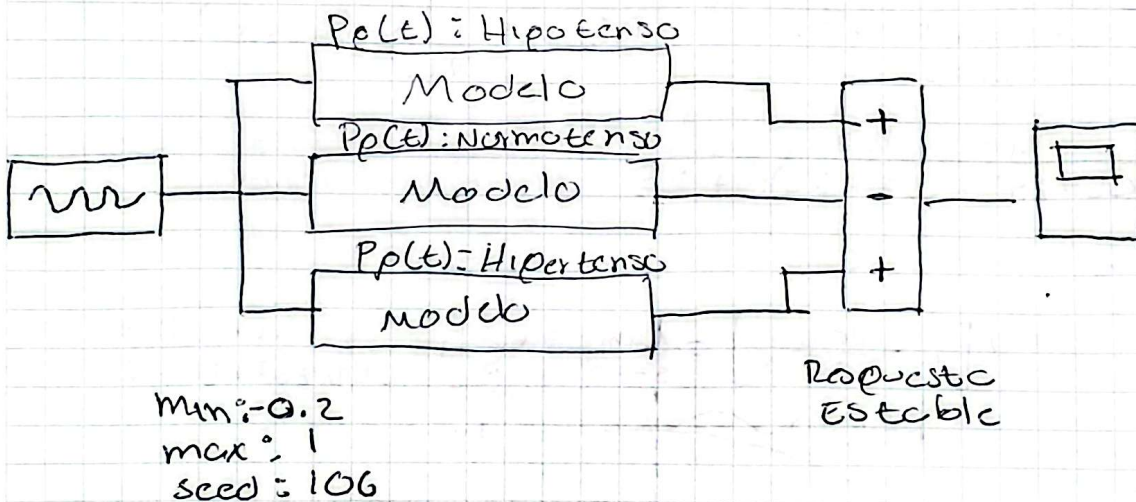 Pp(t): Hipotenso
Modelo
Pp(t): Normotenso
Modelo
Pp(t): Hipertenso
Modelo
+
-
+
Respuesta
Estable
min: -0.2
max: 1
seed: 106